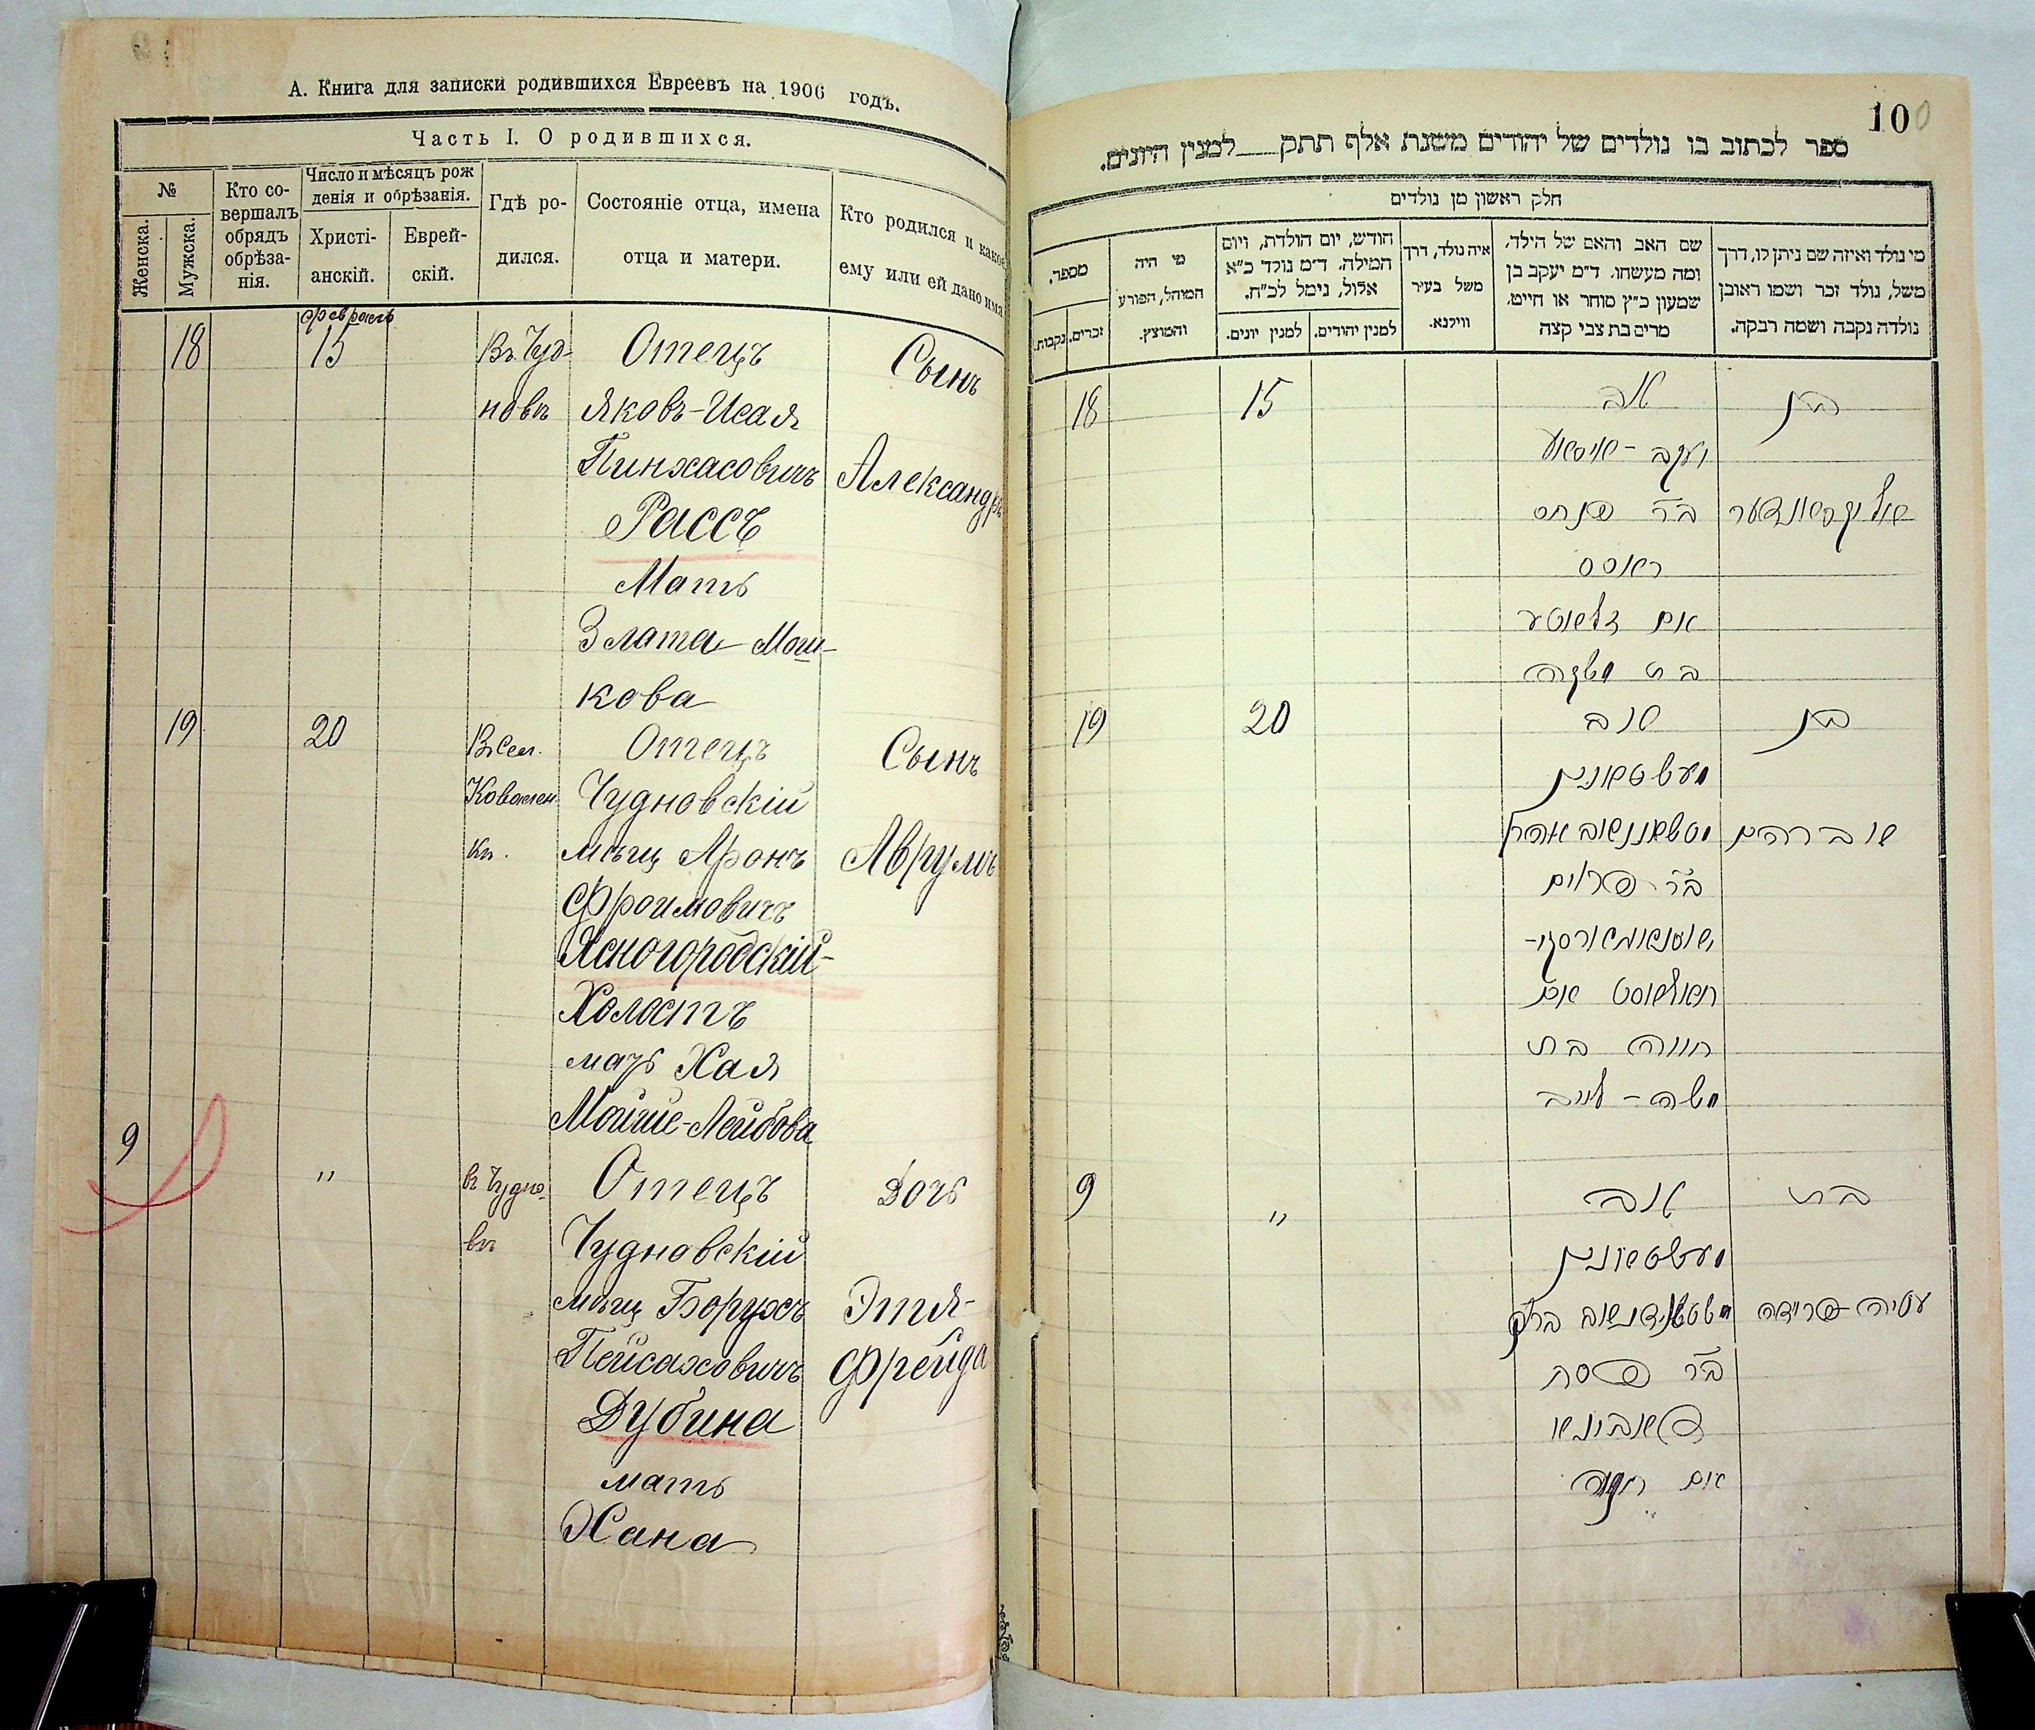 А. Книга для записки родившихся Евреевъ на 1906 годъ.
Часть I. О родившихся.
№
Женска.
Мужска.
Кто совершалъ обрядъ обрѣзанія.
Число и мѣсяцъ рожденія и обрѣзанія.
Христіанскій.
Еврейскій.
Гдѣ родился.
Состояніе отца, имена отца и матери.
Кто родился и какое ему или ей дано имя
18
февраль
15
Въ Чуд-
новѣ
Отецъ
Яковъ-Исая
Пинхасовичъ
Рассъ
Мать
Злата Мош-
кова
Сынъ
Александръ
19
20
Въ сел.
Отецъ
Чудновскій
мѣщ Аронъ
Фроимовичъ
Ясногородскій-
Холостъ
мать Хая
Мойше-Лейбова
Сынъ
Аврумъ
9
"
въ Чудно-
вѣ
Отецъ
Чудновскій
мѣщ Борухъ
Пейсаховичъ
Дубина
мать
Хана
Дочь
Этя-
Фрейда
100
ספר לכתוב בו נולדים של יהודים משנת אלף תתק למנין היונים.
חלק ראשון מן נולדים
מי נולד ואיזה שם ניתן לו, דרך
משל, נולד זכר ושמו ראובן
נולדה נקבה ושמה רבקה.
שם האב והאם של הילד,
ומה מעשהו, ד״מ יעקב בן
שמעון כ״ץ סוחר או חייט,
מרים בת צבי קצה
איה נולד, דרך
משל בעיר
ווילנא.
חודש, יום הולדת, ויום
המילה, ד״מ נולד כ״א
אלול, נימל לכ״ח.
למנין יהודים.
למנין יונים.
מי היה
המוהל, הפורע
והמוצץ.
מספר.
זכרים.
נקבות.
18
15
אב
בן
ב״ר פנחס
ראסס
אם זלאטע
בת משה
19
20
אב
בן
ב״ר פרוים
חאלאסט אם
חייה בת
משה-לייב
9
"
אב
בת
עטיה פריידה
ב״ר פסח
אם חנה